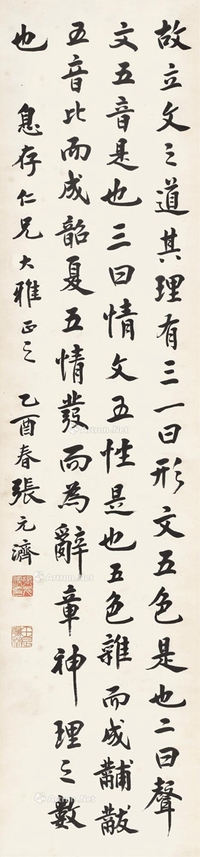 故立文之道其理有三一曰形文五色是也二曰聲
文五音是也三曰情文五性是也五色雜而成黼黻
五音比而成韶夏五情發而為辭章神理之數
也 息存仁兄大雅正之 乙酉春張元濟